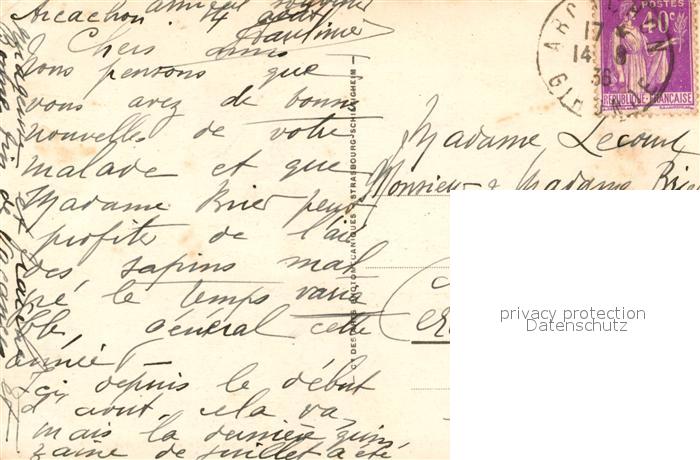 Arcachon 14 août
Chers amis
Nous pensons que
vous avez de bonnes
nouvelles de votre
malade et que
Madame Brier peut
profiter de l'air
des sapins mal
gré le temps varia
ble, général cette
année —
Ici, depuis le début
d'août, cela va,
mais la dernière quin
zaine de juillet a été
POSTES
40c
REPUBLIQUE FRANCAISE
ARCACHON
17
14 8
38
GIRONDE
Madame Lecomte
Monsieur & Madame Brier
Cer
CIE DES ARTS PHOTOMECANIQUES STRASBOURG-SCHILTIGHEIM
privacy protection
Datenschutz